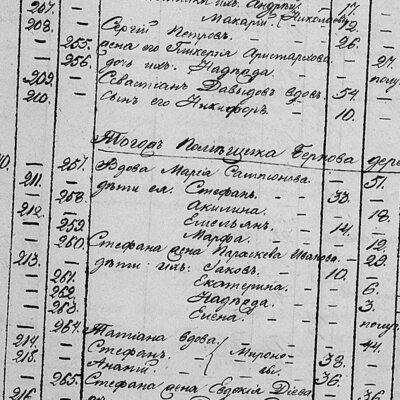 207. — Андрей — 17.
Макарий Николаев 12.
208. — Сергий Петровъ. — 26.
— 255. жена его Гликерія Аристархова. — 27.
— 256. дочь ихъ Надѣжда. — полу
209. — Севастіанъ Давидовъ вдовъ. 54. —
210. — сынъ его Никифоръ. — 10. —
Тогожъ Помѣщика Бернова дере
— 257. Вдова Марія Сампсонова. — 51.
211. — дѣти ея: Стефанъ. — 33. —
— 258. Акилина. — 18.
212. — Емельянъ. — 14. —
— 259. Марфа. — 12.
— 260. Стефана жена Параскева Иванова. — 29.
213. — дѣти ихъ: Іаковъ. — 10. —
— 261. Екатерина. — 6.
— 262. Надѣжда. — 3.
— 263. Елена. — полу
— 264. Татіана вдова. — 44.
214. — Стефанъ. Мироно-
215. — Ананій вы. 38. —
— 265. Стефана жена Евдокія Діева 36.
216. 36.